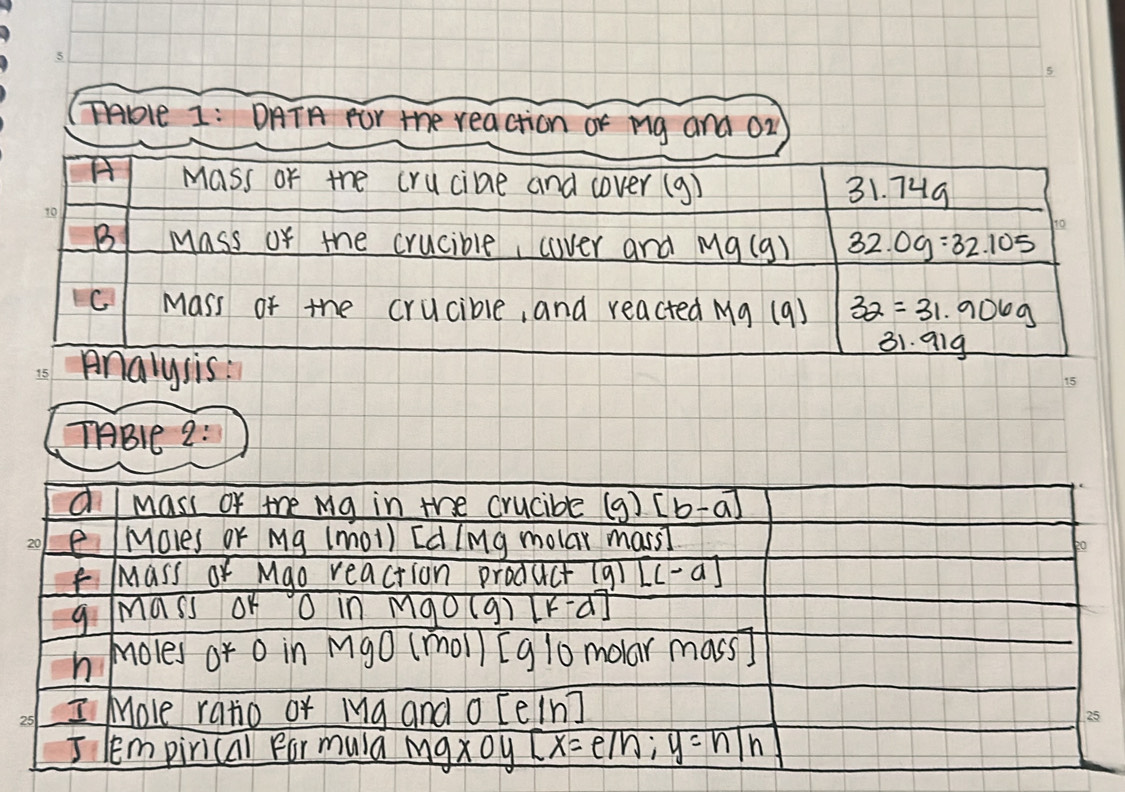 5
5
TABle 1: DATA For the reaction of Mg and O2
A Mass of the crucible and cover (g) 31.74g
10 10
B Mass of the crucible, cover and Mg (g) 32.0g = 32.105
C Mass of the crucible, and reacted Mg (g) 32 = 31.906g
31.91g
Analysis:
15 15
TABle 2:
d Mass of the Mg in the crucible (g) [b-a]
20 e Moles of Mg (mol) [d/Mg molar mass] 20
f Mass of MgO reaction product (g) [c-a]
g Mass of O in MgO (g) [f-d]
h Moles of O in MgO (mol) [g/O molar mass]
25 I Mole ratio of Mg and O [e/h] 25
J Empirical Formula MgxOy [x=e/h; y=h/h]